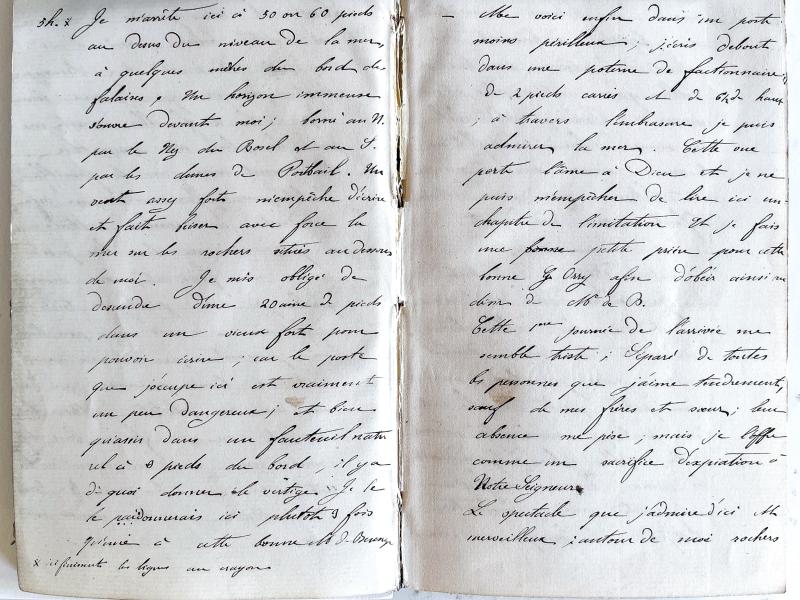 5h. x Je m'arrête ici à 50 ou 60 pieds
au dessus du niveau de la mer,
à quelques mètres du bord des
falaises. Un horizon immense
s'ouvre devant moi; borné au N.
par le Nez du Bosel et au S.
par les dunes de Portbail. Un
vent assez fort m'empêche d'écrire
et fait briser avec force la
mer sur les rochers situés au dessous
de moi. Je suis obligé de
descendre d'une 20aine de pieds
dans un vieux fort pour
pouvoir écrire; car le poste
que j'occupe ici est vraiment
un peu dangereux; et bien
qu'assis dans un fauteuil natu
rel à 8 pieds du bord, il y a
de quoi donner le vertige. Je le
pardonnerais ici plutôt 3 fois
qu'une à cette bonne M. de
x ici finissent les lignes au crayon
— Me voici enfin dans un poste
moins périlleux; j'écris debout
dans une poterne de factionnaire,
de 2 pieds carrés et de 6 de haut
; à travers l'embrasure je puis
admirer la mer. Cette vue
porte l'âme à Dieu et je ne
puis m'empêcher de lire ici un
chapitre de l'imitation Et je fais
une petite prière pour cette
bonne G Orry afin d'obéir ainsi au
désir de Me de B.
Cette 1ère journée de l'arrivée me
semble triste; Séparé de toutes
les personnes que j'aime tendrement,
sauf de mes frères et sœur; leur
absence me pèse; mais je l'offre
comme un sacrifice d'expiation à
Notre Seigneur.
Le spectacle que j'admire d'ici est
merveilleux; autour de moi rochers